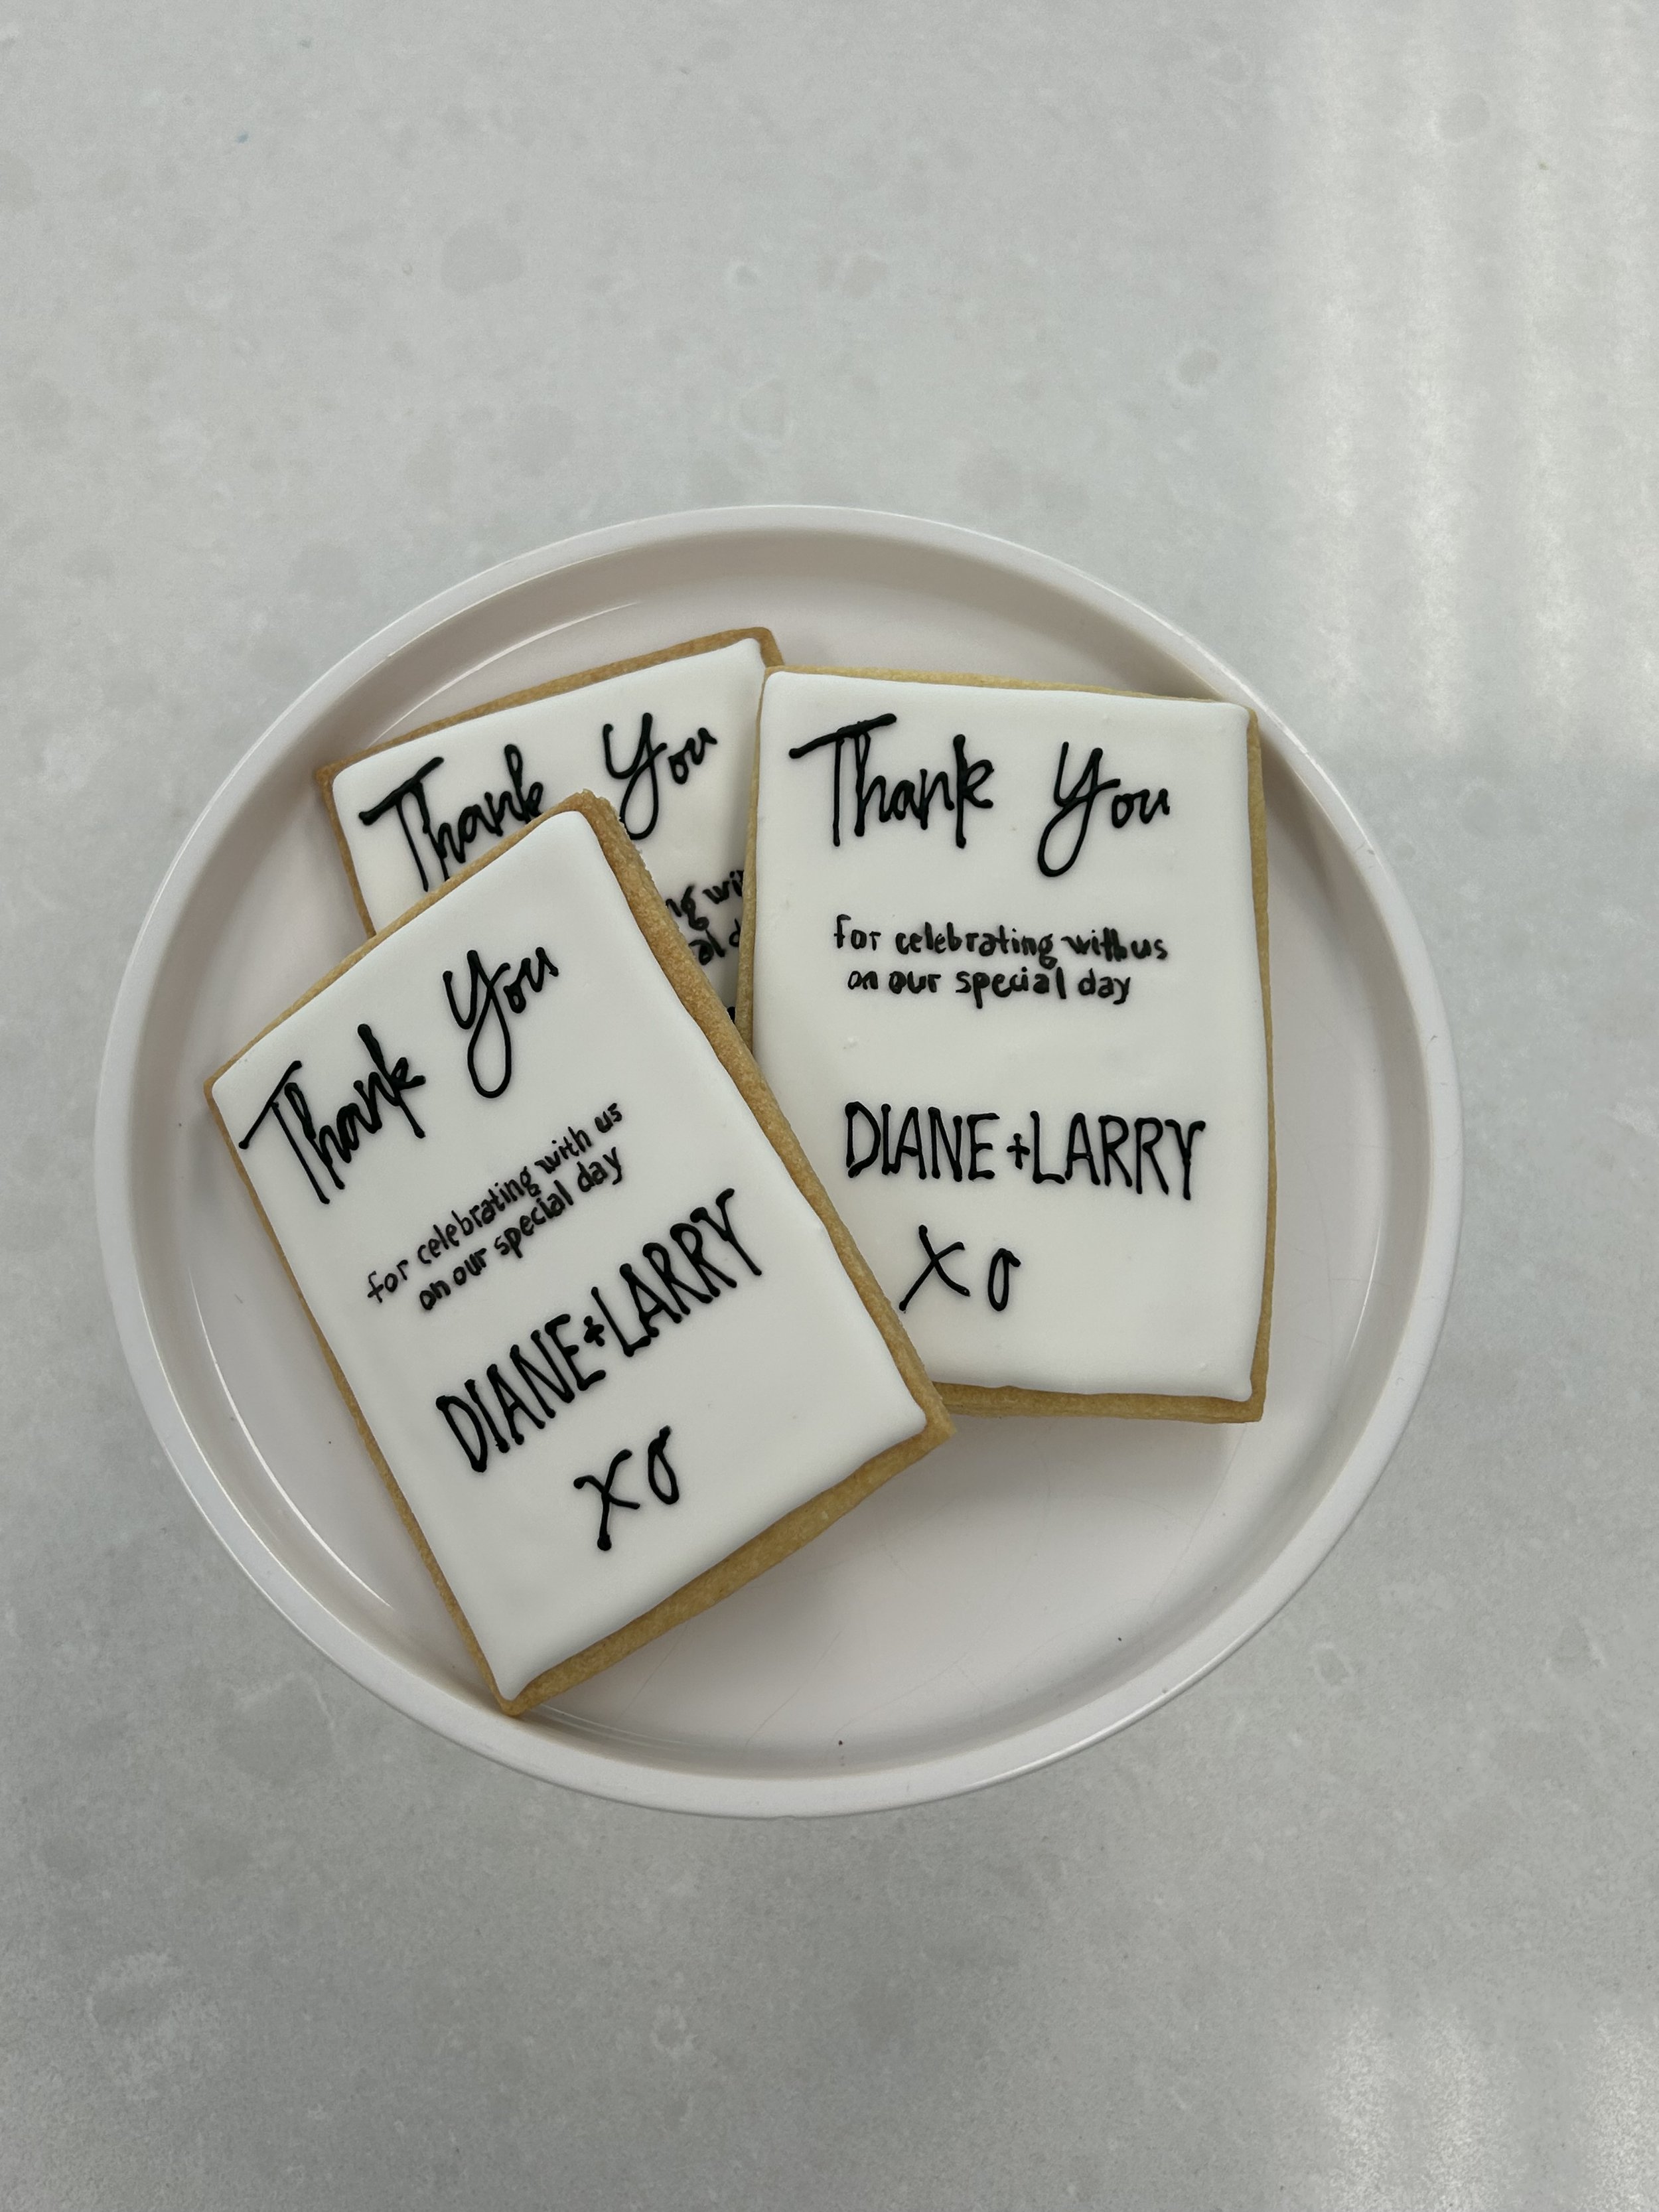 Thank You
Thank You
for celebrating with us
on our special day
DIANE + LARRY
XO
Thank You
for celebrating with us
on our special day
DIANE + LARRY
XO